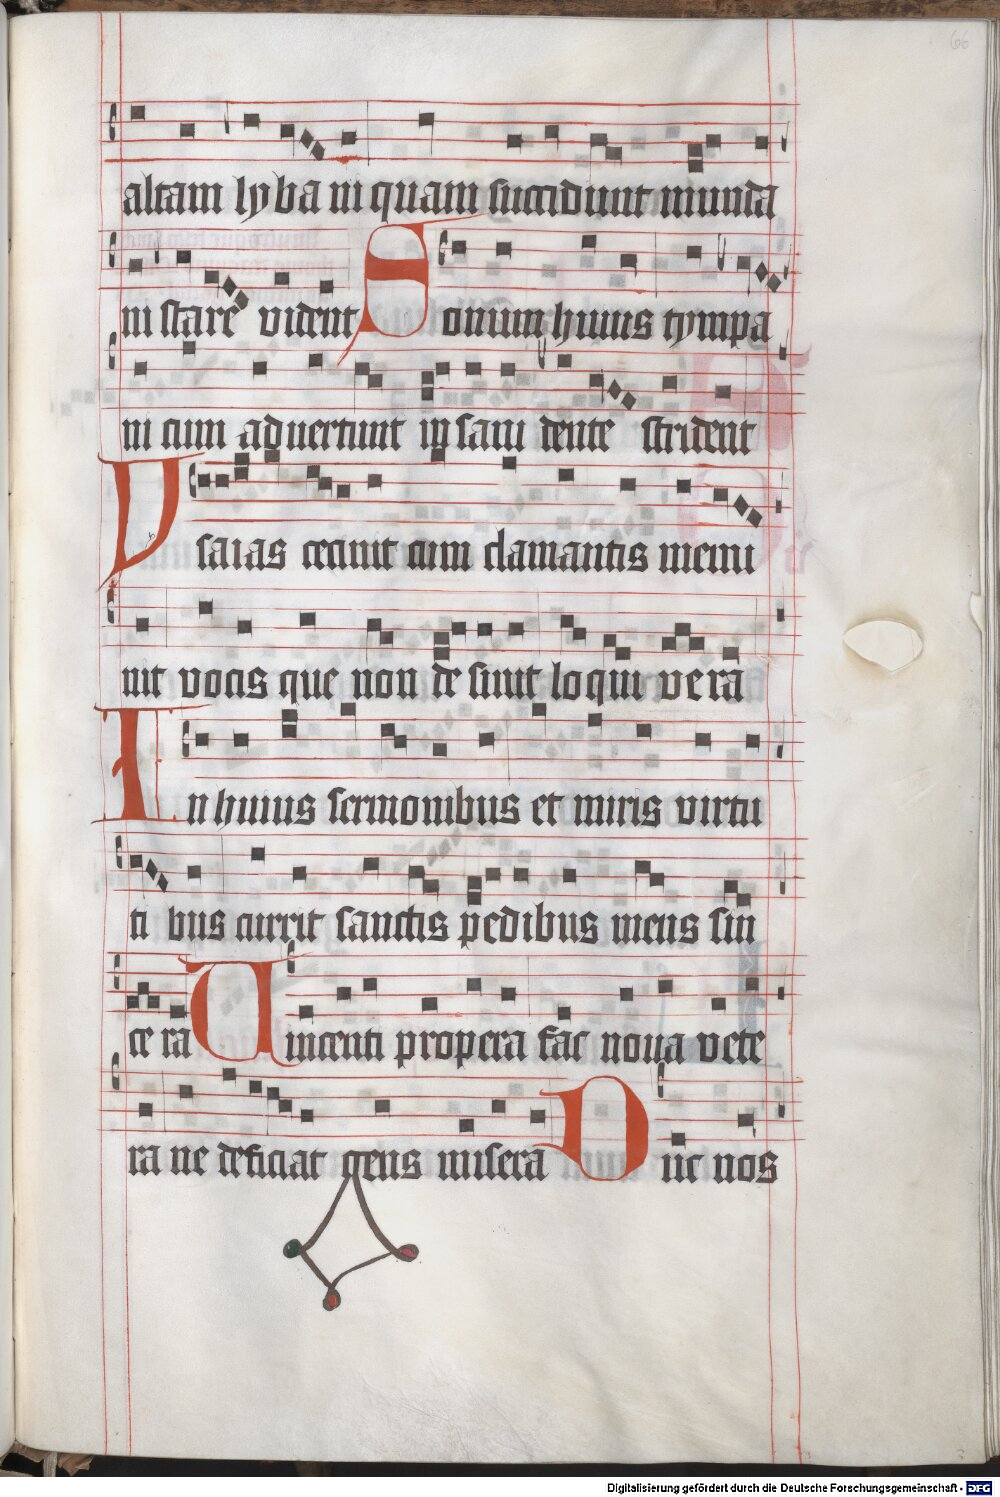 66
altam lyba ni quam succidunt munda
ni stare vident Sonum huius tympa
ni cum aduertunt ip sam dente strident
Ysaias cecinit cum clamantis memi
nit vocis que non de sinit loqui vera
In huius sermonibus et miris virtu
ti bus currit sanctis pedibus mens sin
ce ra Uincenti propera fac noua vete
ra ne deficiat gens misera Duc nos
Digitalisierung gefördert durch die Deutsche Forschungsgemeinschaft - DFG